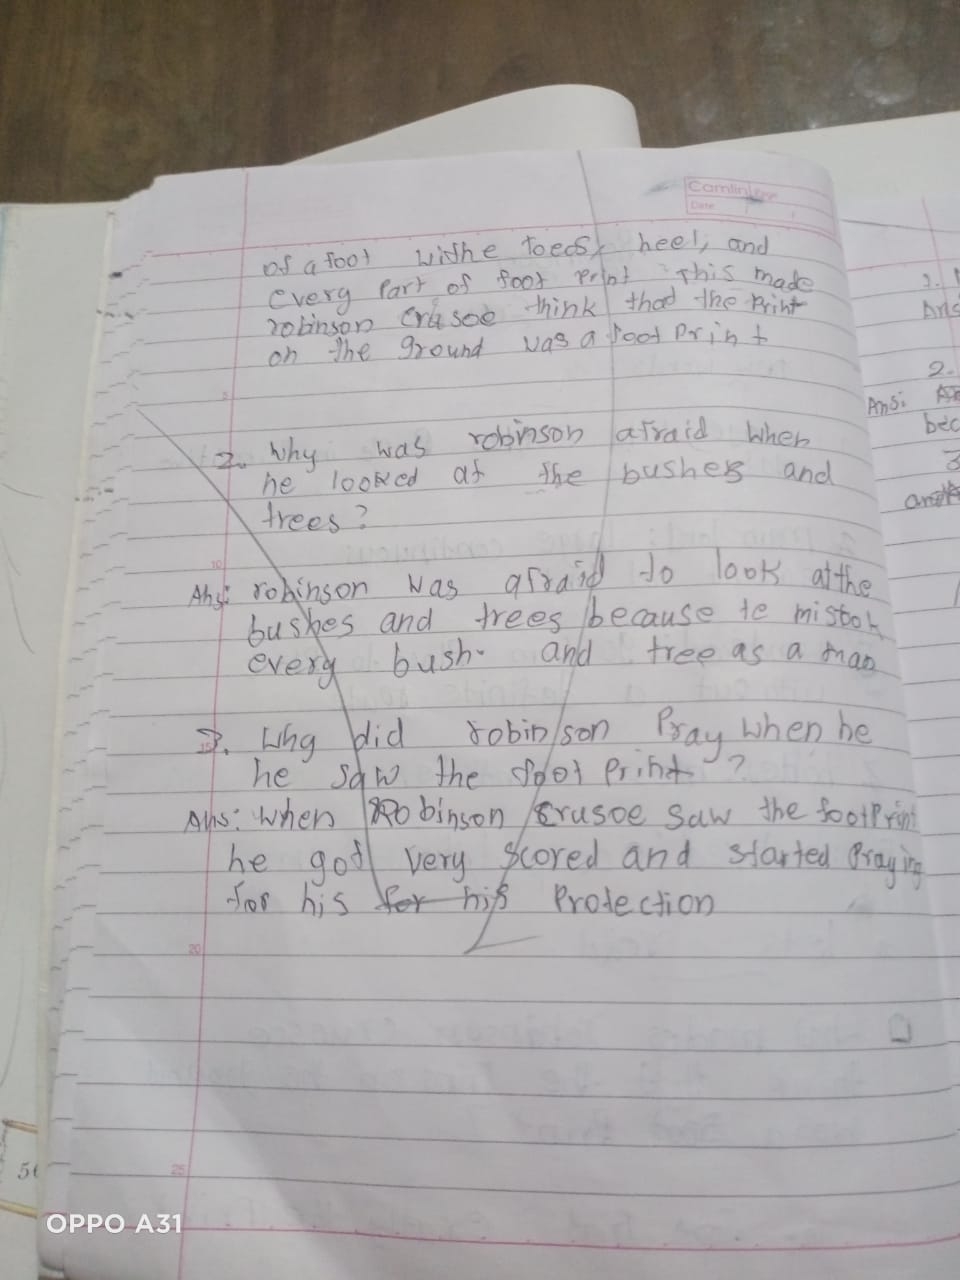 Camlin Page
Date
of a foot withe toeds, heel, and
every part of foot print. This made
robinson crusoe think thad the print
on the ground was a foot print
5
2. Why was robinson afraid when
he looked at the bushes and
trees?
10
Ans: robinson was afraid to look at the
bushes and trees because te mistook
every bush. and tree as a man
15
3. Why did robinson Pray when he
he saw the foot print ?
Ans: When Robinson Crusoe saw the footprint
he got very scored and started Praying
for his for his Protection
20
25
1.
Ans
2.
Ans:
bec
3
ans
56
OPPO A31